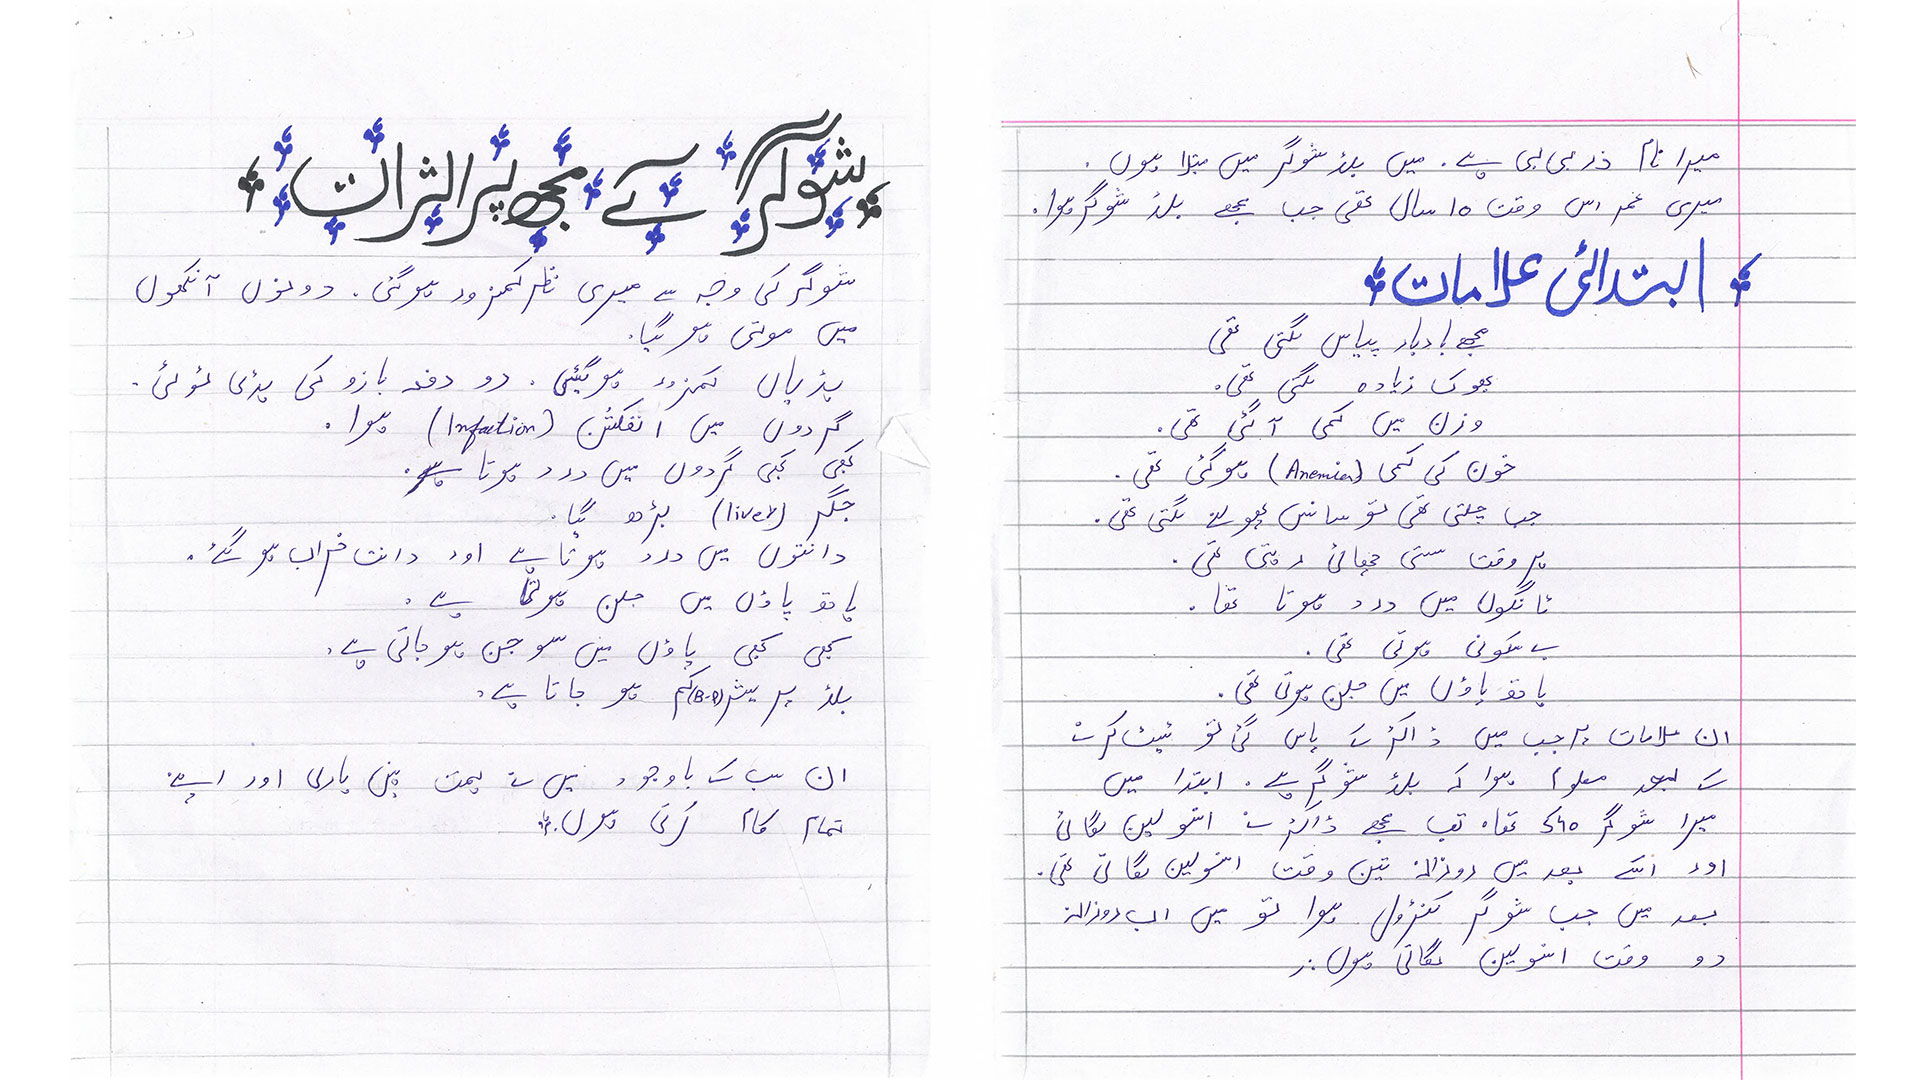 میرا نام ذر بی بی ہے۔ میں بلڈ شوگر میں مبتلا ہوں۔
میری عمر اس وقت 10 سال تھی جب مجھے بلڈ شوگر ہوا۔
ابتدائی علامات
مجھے بار بار پیاس لگتی تھی
بھوک زیادہ لگتی تھی۔
وزن میں کمی آ گئی تھی۔
خون کی کمی (Anemia) ہوگئی تھی۔
جب چلتی تھی تو سانس پھولنے لگتی تھی۔
ہر وقت سستی چھائی رہتی تھی۔
ٹانگوں میں درد ہوتا تھا۔
بے سکونی ہوتی تھی۔
ہاتھ پاؤں میں جلن ہوتی تھی۔
ان علامات پر جب میں ڈاکٹر کے پاس گئی تو ٹیسٹ کرنے
کے بعد معلوم ہوا کہ بلڈ شوگر ہے۔ ابتدا میں
میرا شوگر 540 تھا۔ تب مجھے ڈاکٹر نے انسولین لگائی
اور اسکے بعد میں روزانہ تین وقت انسولین لگاتی تھی۔
بعد میں جب شوگر کنٹرول ہوا تو میں اب روزانہ
دو وقت انسولین لگاتی ہوں۔
شوگر کے مجھ پر اثرات
شوگر کی وجہ سے میری نظر کمزور ہوگئی۔ دونوں آنکھوں
میں موتی ہو گیا۔
ہڈیاں کمزور ہوگئیں۔ دو دفعہ بازو کی ہڈی ٹوٹی۔
گردوں میں انفکشن (Infection) ہوا۔
کبھی کبھی گردوں میں درد ہوتا ہے۔
جگر (liver) بڑھ گیا۔
دانتوں میں درد ہوتا ہے اور دانت خراب ہو گئے۔
ہاتھ پاؤں میں جلن ہوتا ہے۔
کبھی کبھی پاؤں میں سوجن ہو جاتی ہے۔
بلڈ پریشر (B-P) کم ہو جاتا ہے۔
ان سب کے باوجود میں نے ہمت نہیں ہاری اور اپنے
تمام کام کرتی ہوں۔